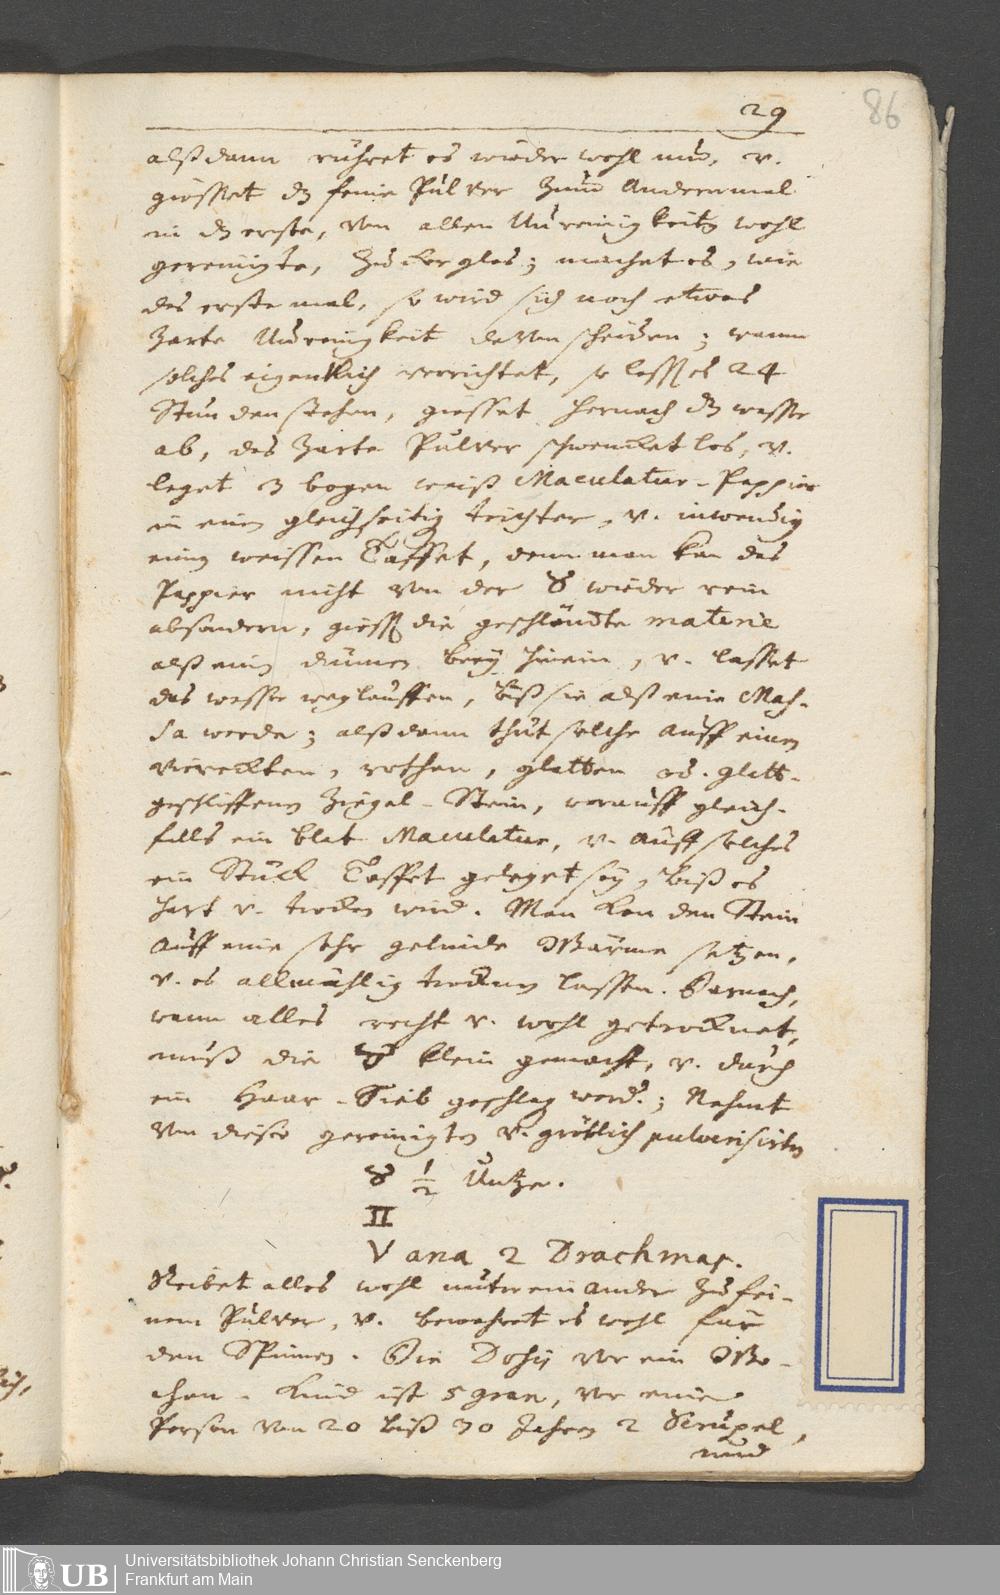 29
86
alßdann rühret es wieder wohl um, v.
giesset dz feine Pulver zum Andernmal
in dz erste, von allen Unreinigkeitẽ wohl
gereinigte, Zuckerglas; machet es, wie
das erste mal, so wird sich noch etwas
zarte Unreinigkeit davon scheiden; wann
solches eigentlich verrichtet, so lasst es 24
Stunden stehen, giesset hernach dz wasser
ab, das zarte Pulver schwencket los, v.
leget 3 bogen weiß Maculatur-Pappier
in einen gleichseitig trichter, v. inwendig
einen weissen Taffet, denn man kan das
Pappier nicht von der ♉ wieder rein
absondern, giesst die geschlämte materie
alß einen dünnen brey hinein, v. lasset
das wasser weglauffen, biß sie alß eine Mas-
sa werde; alßdann thut solche auff einen
viereckten, rothen, glatten od. glatt-
geschliffenen Ziegel-Stein, worauff gleich-
falls ein blat Maculatur, v. auff solches
ein Stück Taffet geleget sey, biß es
hart v. trocken wird. Man kan den Stein
auff eine sehr gelinde Wärme setzen,
v. es allmählig trocknen lassen. Darnach,
wann alles recht v. wohl getrocknet,
muß die ♉ klein gemacht, v. durch
ein Haar-Sieb geschlag werd.; Nehmt
von dieser gereinigten v. gröblich pulverisirten
♉ 1/2 Untze.
II
V ana 2 Drachmas.
Reibet alles wohl untereinander zu fei-
nem Pulver, v. bewahret es wohl für
den Spinnen. Die Dosis vor ein Wo-
chen-Kind ist 5 gran, vor eine
Person von 20 biß 30 Jahren 2 Scrupel,
und
UB
Universitätsbibliothek Johann Christian Senckenberg
Frankfurt am Main